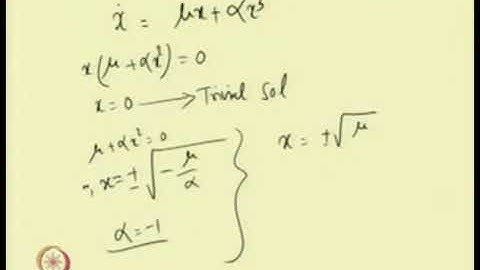 ẋ = μx + αx³
x(μ + αx²) = 0
x = 0 → Trivial Sol
μ + αx² = 0
⇒, x = ± √(-μ/α)
α = -1
x = ±√μ